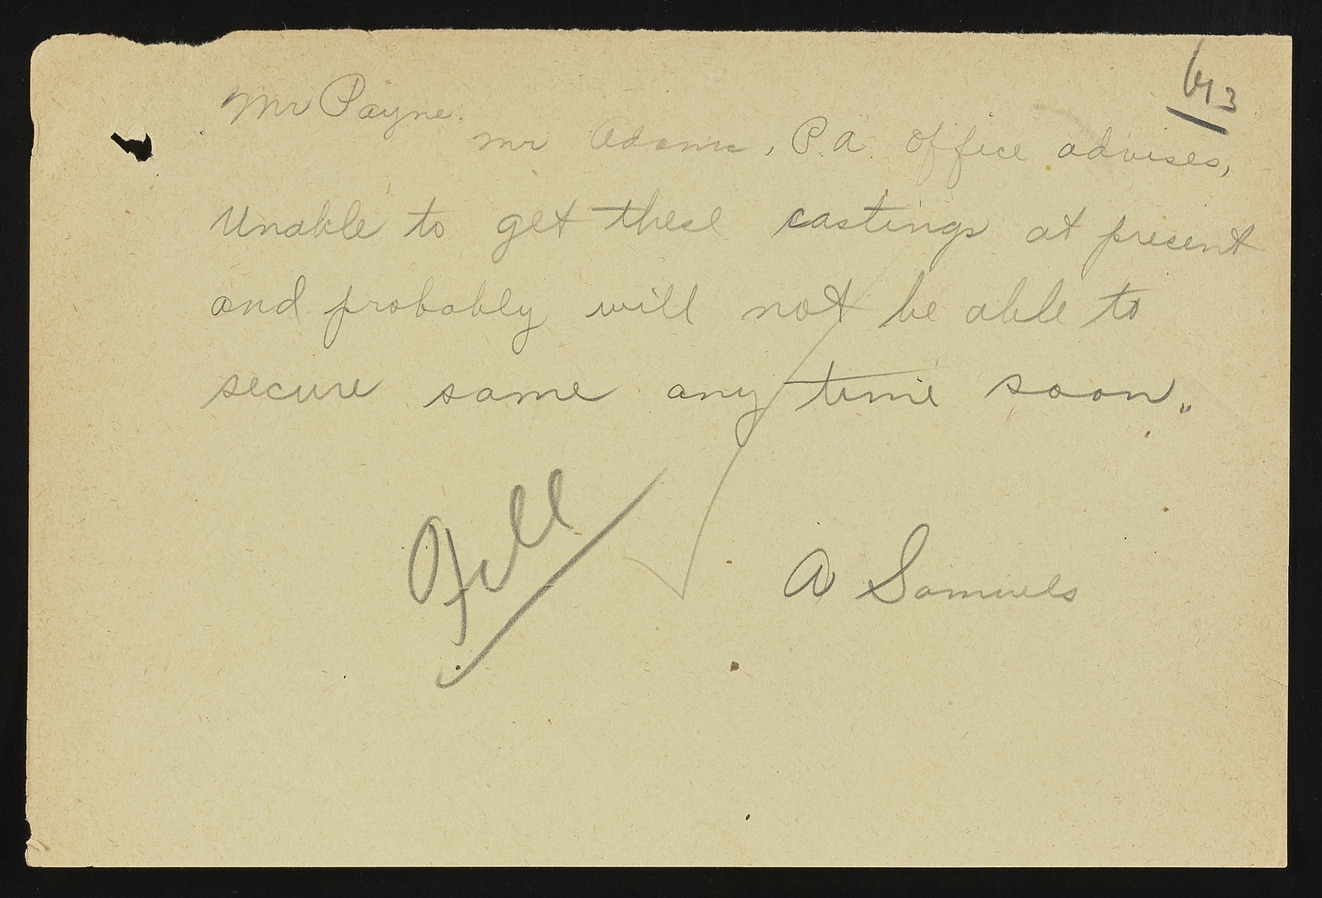 613
Mr Payne.
Mr Adams, P.A. Office advises,
Unable to get these castings at present
and probably will not be able to
secure same any time soon.
A Samuels